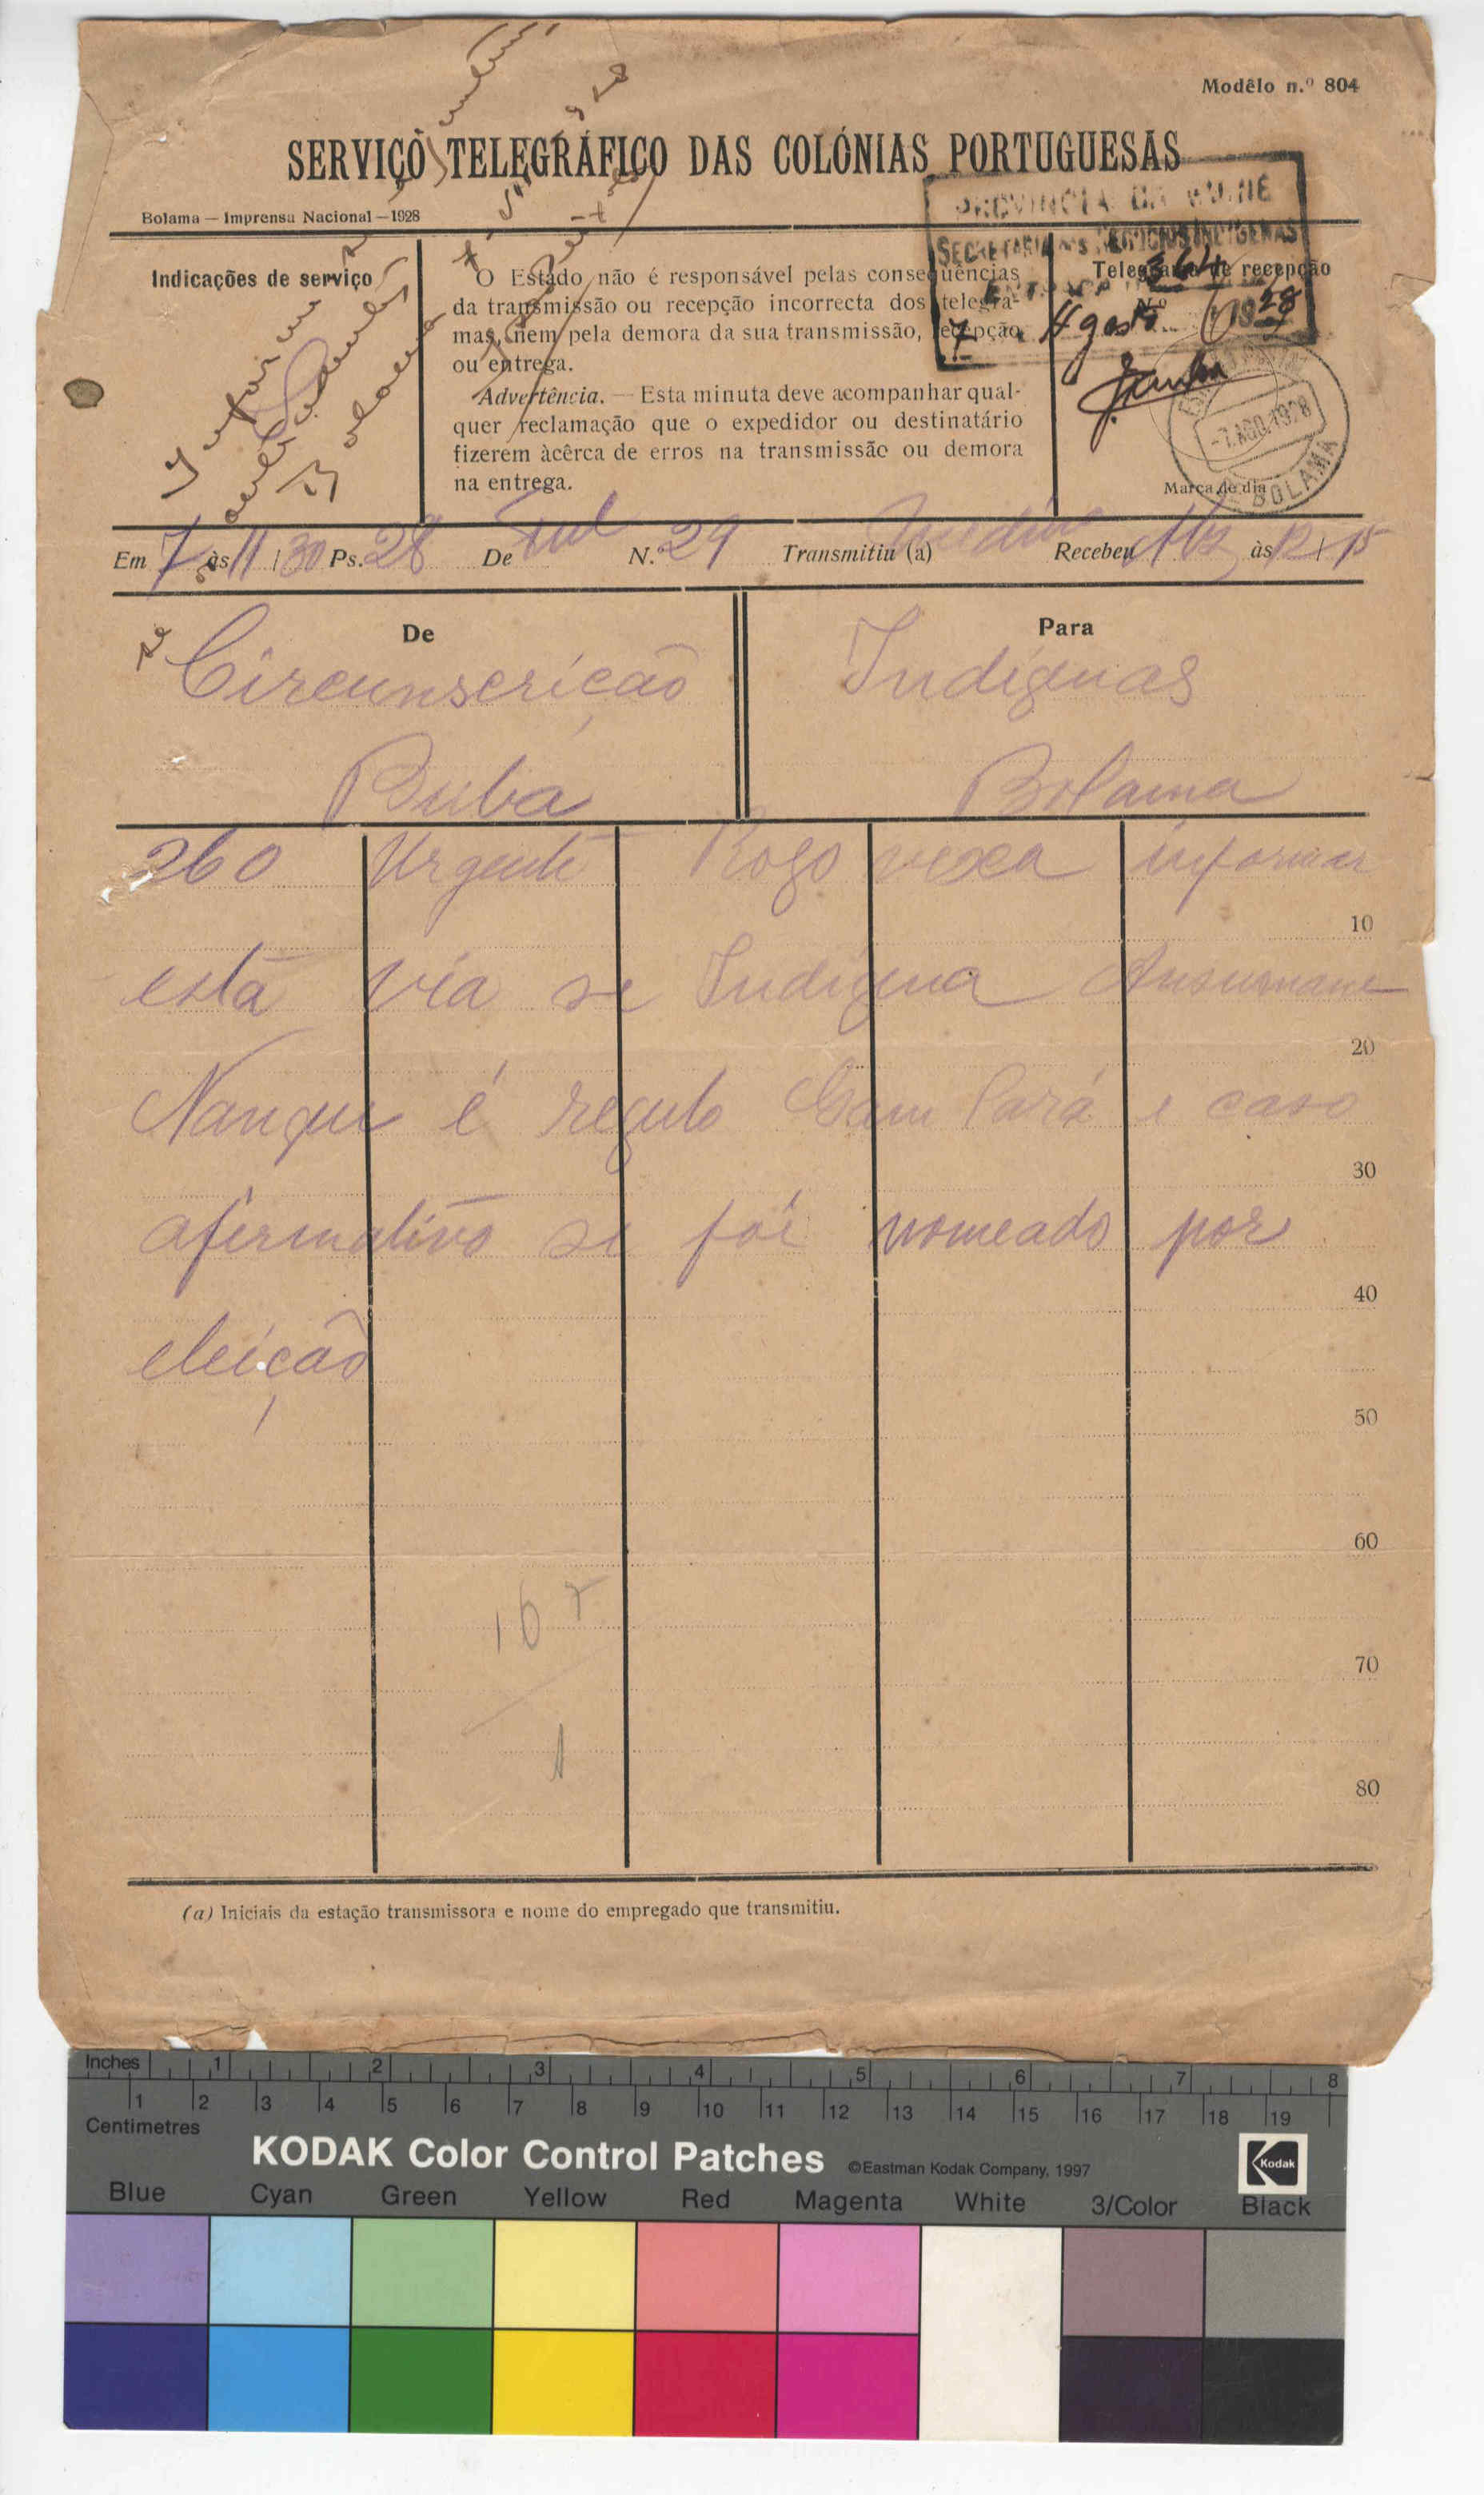 Modêlo n.º 804
SERVIÇO TELEGRÁFICO DAS COLÓNIAS PORTUGUESAS
Bolama — Imprensa Nacional — 1928
PROVINCIA DA GUINÉ
SECRETARIA DOS NEGOCIOS INDIGENAS
364
7 Agosto 1928
Indicações de serviço
O Estado não é responsável pelas consequências
da transmissão ou recepção incorrecta dos telegra-
mas, nem pela demora da sua transmissão, recepção
ou entrega.
Advertência. — Esta minuta deve acompanhar qual-
quer reclamação que o expedidor ou destinatário
fizerem àcêrca de erros na transmissão ou demora
na entrega.
Telegrama de recepção
N.º
-7.AGO.1928
BOLAMA
Marca de dia
Em 7 às 11 / 30 Ps. 28 De N.º 29 Transmitiu (a) Recebeu às 12 / 15
De
Circunscrição
Buba
Para
Indígenas
Bolama
260 Urgente Rogo vexa informar
10
esta via se Indígena Ansumane
20
Nanqui é regulo Gam Pará e caso
30
afirmativo se foi nomeado por
40
eleição
50
60
70
80
(a) Iniciais da estação transmissora e nome do empregado que transmitiu.
Inches 1 2 3 4 5 6 7 8
1 2 3 4 5 6 7 8 9 10 11 12 13 14 15 16 17 18 19
Centimetres
KODAK Color Control Patches ©Eastman Kodak Company, 1997 Kodak
Blue Cyan Green Yellow Red Magenta White 3/Color Black